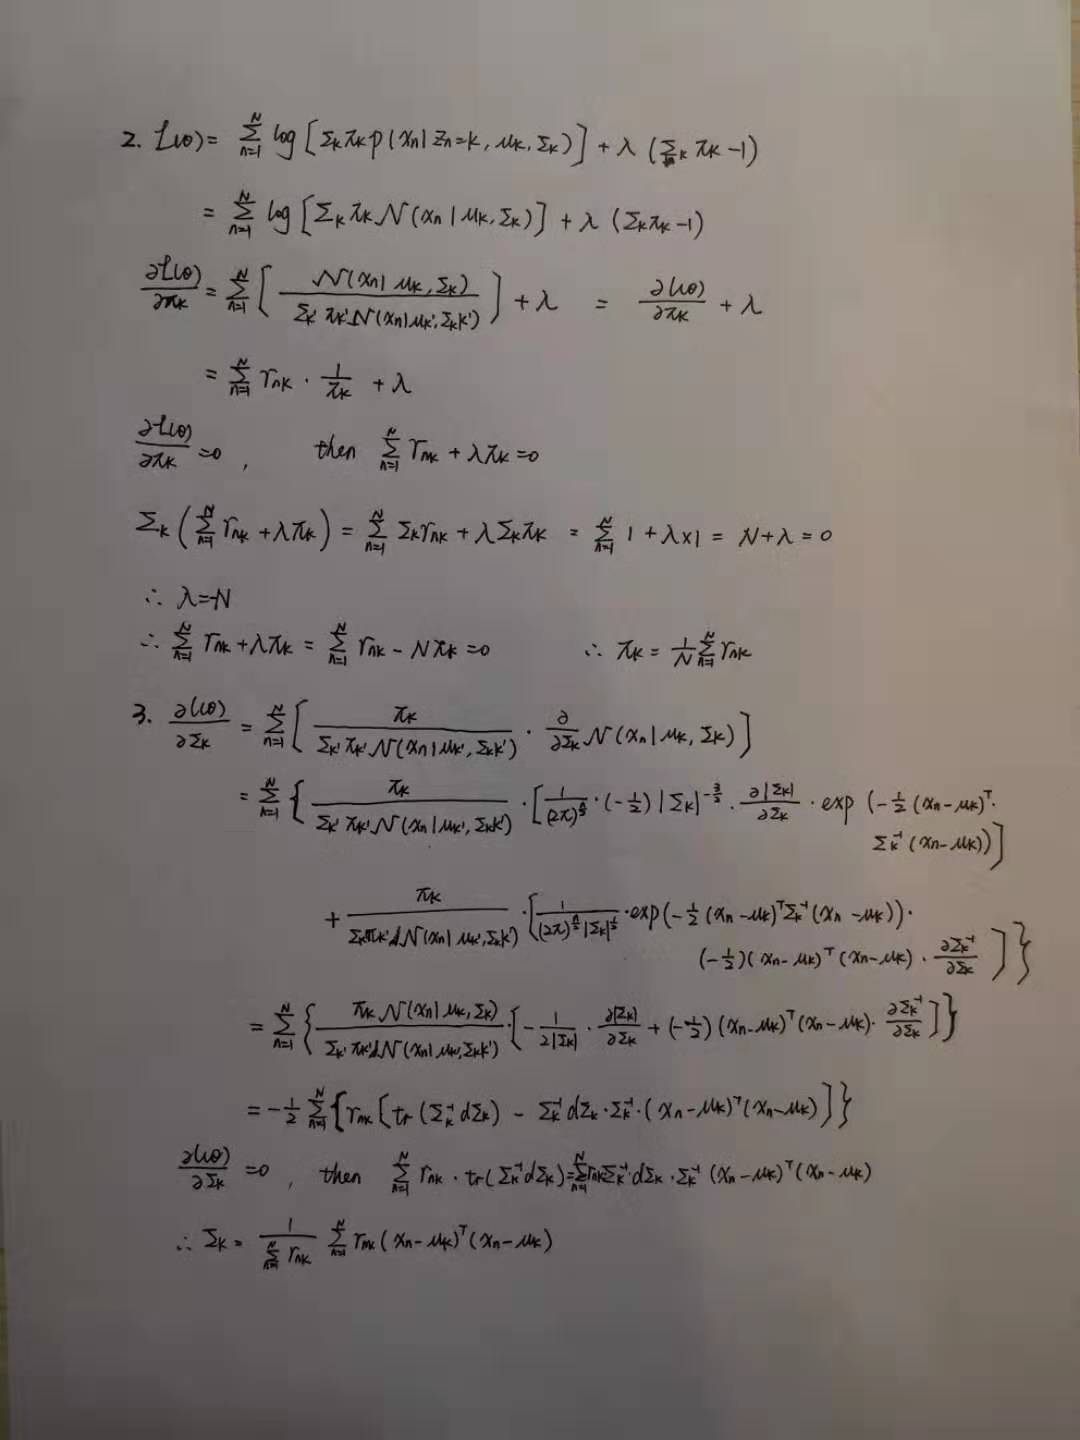 2. L(θ) = Σ_{n=1}^{N} log [Σ_k π_k p(x_n | z_n=k, μ_k, Σ_k)] + λ (Σ_k π_k - 1)
= Σ_{n=1}^{N} log [Σ_k π_k N(x_n | μ_k, Σ_k)] + λ (Σ_k π_k - 1)
∂L(θ)/∂π_k = Σ_{n=1}^{N} [ N(x_n | μ_k, Σ_k) / Σ_k' π_k' N(x_n | μ_k', Σ_k') ] + λ = ∂l(θ)/∂π_k + λ
= Σ_{n=1}^{N} r_nk · 1/π_k + λ
∂L(θ)/∂π_k = 0 , then Σ_{n=1}^{N} r_nk + λπ_k = 0
Σ_k ( Σ_{n=1}^{N} r_nk + λπ_k ) = Σ_{n=1}^{N} Σ_k r_nk + λ Σ_k π_k = Σ_{n=1}^{N} 1 + λ×1 = N + λ = 0
∴ λ = -N
∴ Σ_{n=1}^{N} r_nk + λπ_k = Σ_{n=1}^{N} r_nk - Nπ_k = 0 ∴ π_k = 1/N Σ_{n=1}^{N} r_nk
3. ∂l(θ)/∂Σ_k = Σ_{n=1}^{N} [ π_k / Σ_k' π_k' N(x_n | μ_k', Σ_k') · ∂/∂Σ_k N(x_n | μ_k, Σ_k) ]
= Σ_{n=1}^{N} { π_k / Σ_k' π_k' N(x_n | μ_k', Σ_k') · [ 1/(2π)^{n/2} · (-1/2) |Σ_k|^{-3/2} · ∂|Σ_k|/∂Σ_k · exp (-1/2 (x_n - μ_k)^T ·
Σ_k^{-1} (x_n - μ_k)) ]
+ π_k / Σ_k' π_k' N(x_n | μ_k', Σ_k') · [ 1/((2π)^{n/2} |Σ_k|^{1/2}) · exp(-1/2 (x_n - μ_k)^T Σ_k^{-1} (x_n - μ_k)) ·
(-1/2)(x_n - μ_k)^T (x_n - μ_k) · ∂Σ_k^{-1}/∂Σ_k ] }
= Σ_{n=1}^{N} { π_k N(x_n | μ_k, Σ_k) / Σ_k' π_k' N(x_n | μ_k', Σ_k') · [ - 1/(2|Σ_k|) · ∂|Σ_k|/∂Σ_k + (-1/2) (x_n - μ_k)^T (x_n - μ_k) · ∂Σ_k^{-1}/∂Σ_k ] }
= -1/2 Σ_{n=1}^{N} { r_nk [ tr (Σ_k^{-1} dΣ_k) - Σ_k^{-1} dΣ_k · Σ_k^{-1} · (x_n - μ_k)^T (x_n - μ_k) ] }
∂l(θ)/∂Σ_k = 0 , then Σ_{n=1}^{N} r_nk · tr(Σ_k^{-1} dΣ_k) = Σ_{n=1}^{N} r_nk Σ_k^{-1} · dΣ_k · Σ_k^{-1} (x_n - μ_k)^T (x_n - μ_k)
∴ Σ_k = 1/(Σ_{n=1}^{N} r_nk) Σ_{n=1}^{N} r_nk (x_n - μ_k)^T (x_n - μ_k)